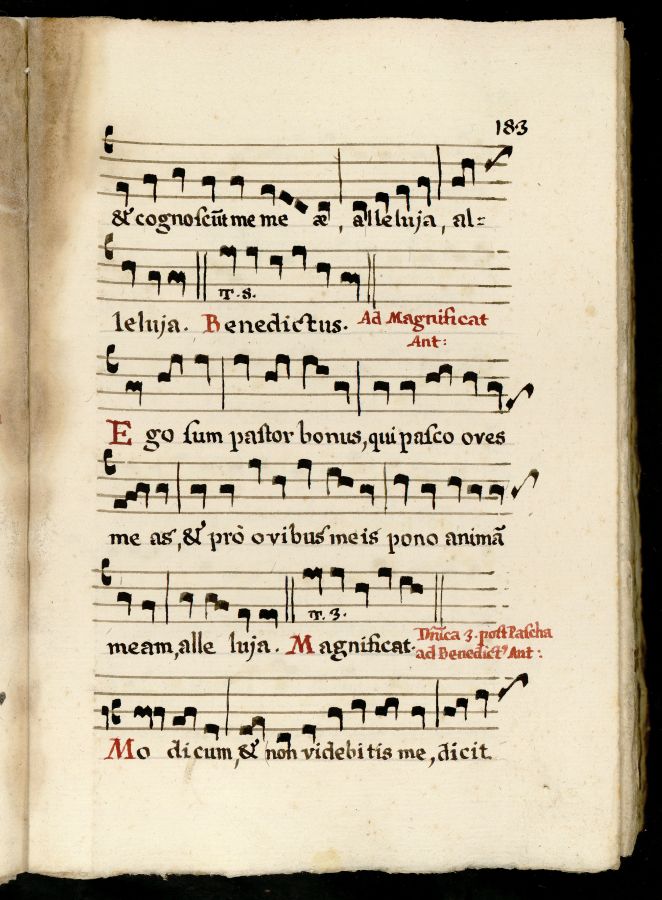 183
& cognoscūt me me æ, alleluja, al=
T. 8.
leluja. Benedictus. Ad Magnificat
Ant:
Ego sum pastor bonus, qui pasco oves
me as, & prò ovibus meis pono animã
T. 3.
meam, alle luja. Magnificat. Dnĩca 3. post Pascha
ad Benedict⁹ Ant:
Mo dicum, & non videbitis me, dicit